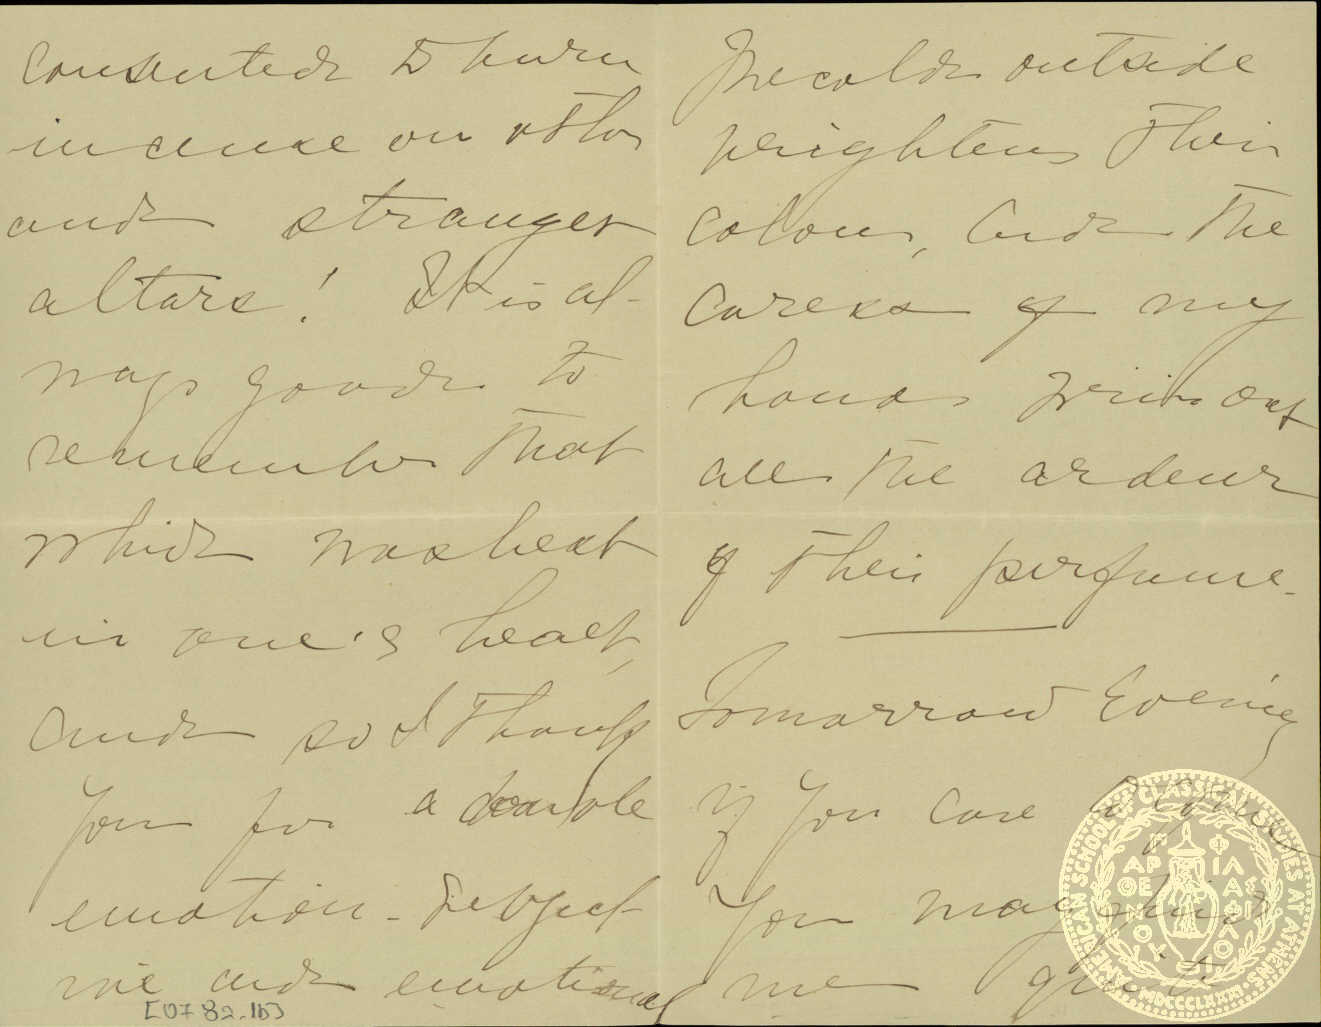 consented to burn
incense on other
and stranger
altars! It is al-
ways good to
remember that
which was best
in one's heart,
and so I thank
you for a double
emotion - Subject
ive and emotional
[0782.1b]
The cold outside
brightens their
colour, and the
caress of my
hands brings out
all the ardeur
of their perfume.
Tomorrow Evening
if you care to come
You may find
me quite
AMERICAN SCHOOL OF CLASSICAL STUDIES AT ATHENS
MDCCCLXXXI